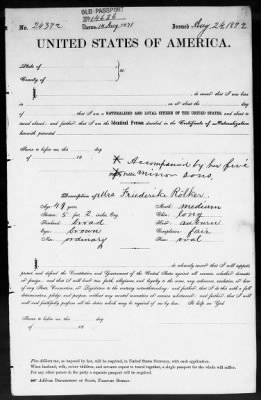 OLD PASSPORT
No. 24372
No 14636
Issued Aug 24 1892
UNITED STATES OF AMERICA.
State of
County of
ss:
I, do swear that I was born
at on or about the day
of ; that I am a NATURALIZED AND LOYAL CITIZEN OF THE UNITED STATES, and about to
travel abroad; and further, that I am the Identical Person described in the Certificate of Naturalization
herewith presented.
Sworn to before me, this day
of 18
X Accompanied by her five
X minor sons.
Description of Mrs Friederike Rölker.
Age: 49 years
Stature: 5 ft 2 inches, Eng.
Forehead: broad
Eyes: brown
Nose: ordinary
Mouth: medium
Chin: long
Hair: auburn
Complexion: fair
Face: oval
I, do solemnly swear that I will support,
protect, and defend the Constitution and Government of the United States against all enemies, whether domestic
or foreign; and that I will bear true faith, allegiance, and loyalty to the same, any ordinance, resolution, or law
of any State, Convention, or Legislature to the contrary notwithstanding; and further, that I do this with a full
determination, pledge, and purpose, without any mental reservation or evasion whatsoever; and further, that I will
well and faithfully perform all the duties which may be required of me by law. So help me God.
Sworn to before me, this day
of 18
Five dollars tax, as imposed by law, will be required, in United States Currency, with each application.
When husband, wife, minor children, and servants expect to travel together, a single passport for the whole will suffice.
For any other person in the party a separate passport will be required.
Address DEPARTMENT OF STATE, PASSPORT BUREAU.